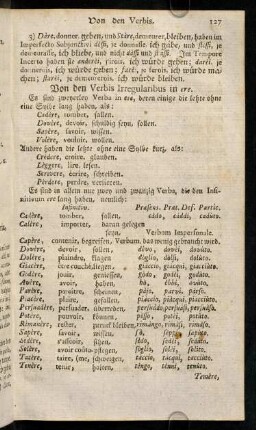 Von den Verbis. 127
3) Dare, donner, geben, und Stare, demeurer, bleiben, haben im
Imperfecto Subjunctivi dessi, je donnasse, ich gäbe, und stessi, je
demeurasse, ich bliebe, und nicht dassi und stassi. Im Tempore
Incerto haben sie anderei, irois, ich würde gehen; darei, je
donnerois, ich würde geben; farei, je ferois, ich würde ma-
chen; starei, je demeurerois, ich würde bleiben.
Von den Verbis Irregularibus in ere.
Es sind zweyerley Verba in ere, deren einige die letzte ohne
eine Sylbe lang haben, als:
Cadére, tomber, fallen.
Dovére, devoir, schuldig seyn, sollen.
Sapére, savoir, wissen.
Volére, vouloir, wollen.
Andere haben die letzte ohne eine Sylbe kurz, als:
Crédere, croire, glauben.
Léggere, lire, lesen.
Scrívere, écrire, schreiben.
Pérdere, perdre, verlieren.
Es sind in allem nur zwey und zwanzig Verba, die den Infi-
nitivum ere lang haben, nemlich:
Infinitiv. Præsens. Præt. Def. Partic.
Cadére, tomber, fallen, cado, caddi, caduto.
Calére, importer, daran gelegen
seyn. Verbum Impersonale.
Capére, contenir, begreiffen, Verbum, das wenig gebraucht wird.
Dovére, devoir, sollen, devo, dovei, dovuto.
Dolére, plaindre, klagen doglio, dolsi, doluto.
Giacére, être couché, liegen, giaccio, giacqui, giacciuto.
Godére, jouir, geniessen, godo, godei, goduto.
Avére, avoir, haben, ho, ebbi, avuto.
Parére, paroître, scheinen, pajo, parvi, parso.
Piacére, plaire, gefallen, piaccio, piacqui, piacciuto.
Persuadére, persuader, überreden, persuado, persuasi, persuaso.
Potére, pouvoir, können, posso, potei, potuto.
Rimanére, rester, zurück bleiben, rimango, rimasi, rimaso.
Sapére, savoir, wissen, so, seppi, saputo.
Sedére, s'asseoir, sitzen, siedo, sedei, seduto.
Solére, avoir coûtume, pflegen, soglio, solei, solito.
Tacére, taire, (me, schweigen, taccio, tacqui, tacciuto.
Tenére, tenir, halten, tengo, tenni, tenuto.
Temére,